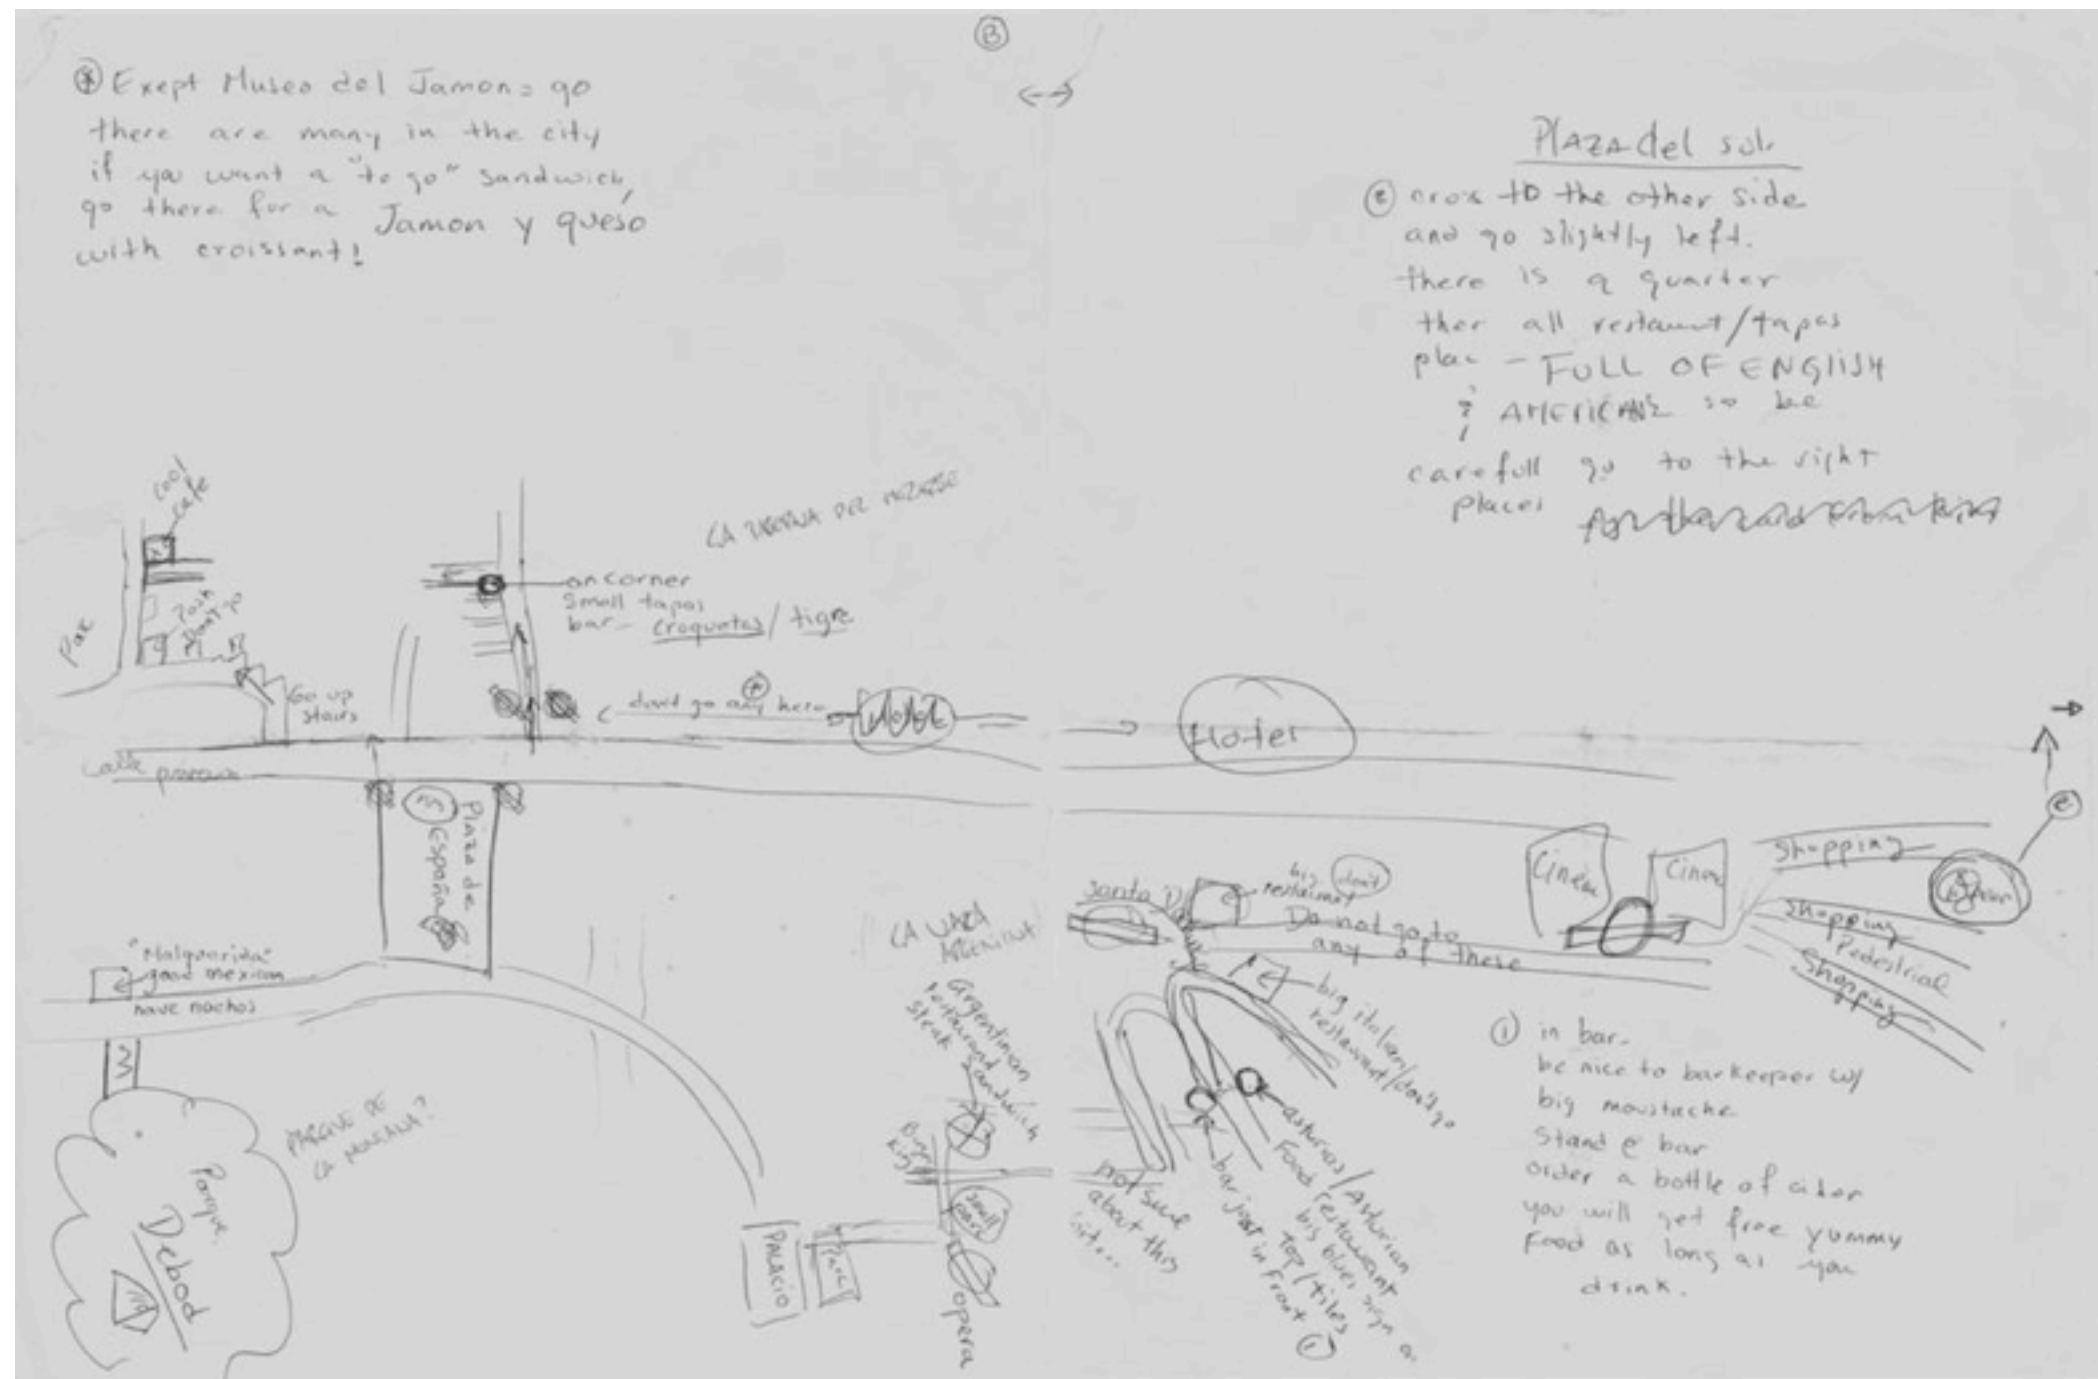 B
* Exept Museo del Jamon = go
there are many in the city
if you want a "to go" sandwich,
go there for a Jamon y queso
with croissant!
Plaza del sol
② cross to the other side
and go slightly left.
there is a quarter
ther all restaurnt/tapas
plac - FULL OF ENGLISH
& AMERICANS so be
carefull go to the right
places
cool
cafe
LA TABERNA DEL
on corner
Small tapas
bar - croquetas / tigre
Go up
stairs
don't go any here *
Hotel
Hotel
calle
Plaza de
España
"Malquerida"
good mexican
have nachos
Parque
Debod
PARQUE DE
LA MONTAÑA?
PALACIO
LA VACA
ARGENTINA
Argentinian
restaurand
steak Sandwich
Burger
King
small
park
opera
Santo D
big don't
restaurant
Do not go to
any of these
big italian
restaurant/don't go
asturias/Asturian
Food restaurant
big blues sign a
top/tiles
bar just in front ①
not sure
about this
Cinem
Cinem
Shopping
Shopping
Pedestrial
Shopping
②
① in bar -
be nice to barkeeper w/
big moustache
Stand @ bar
order a bottle of cider
you will get free yummy
Food as long as you
drink.